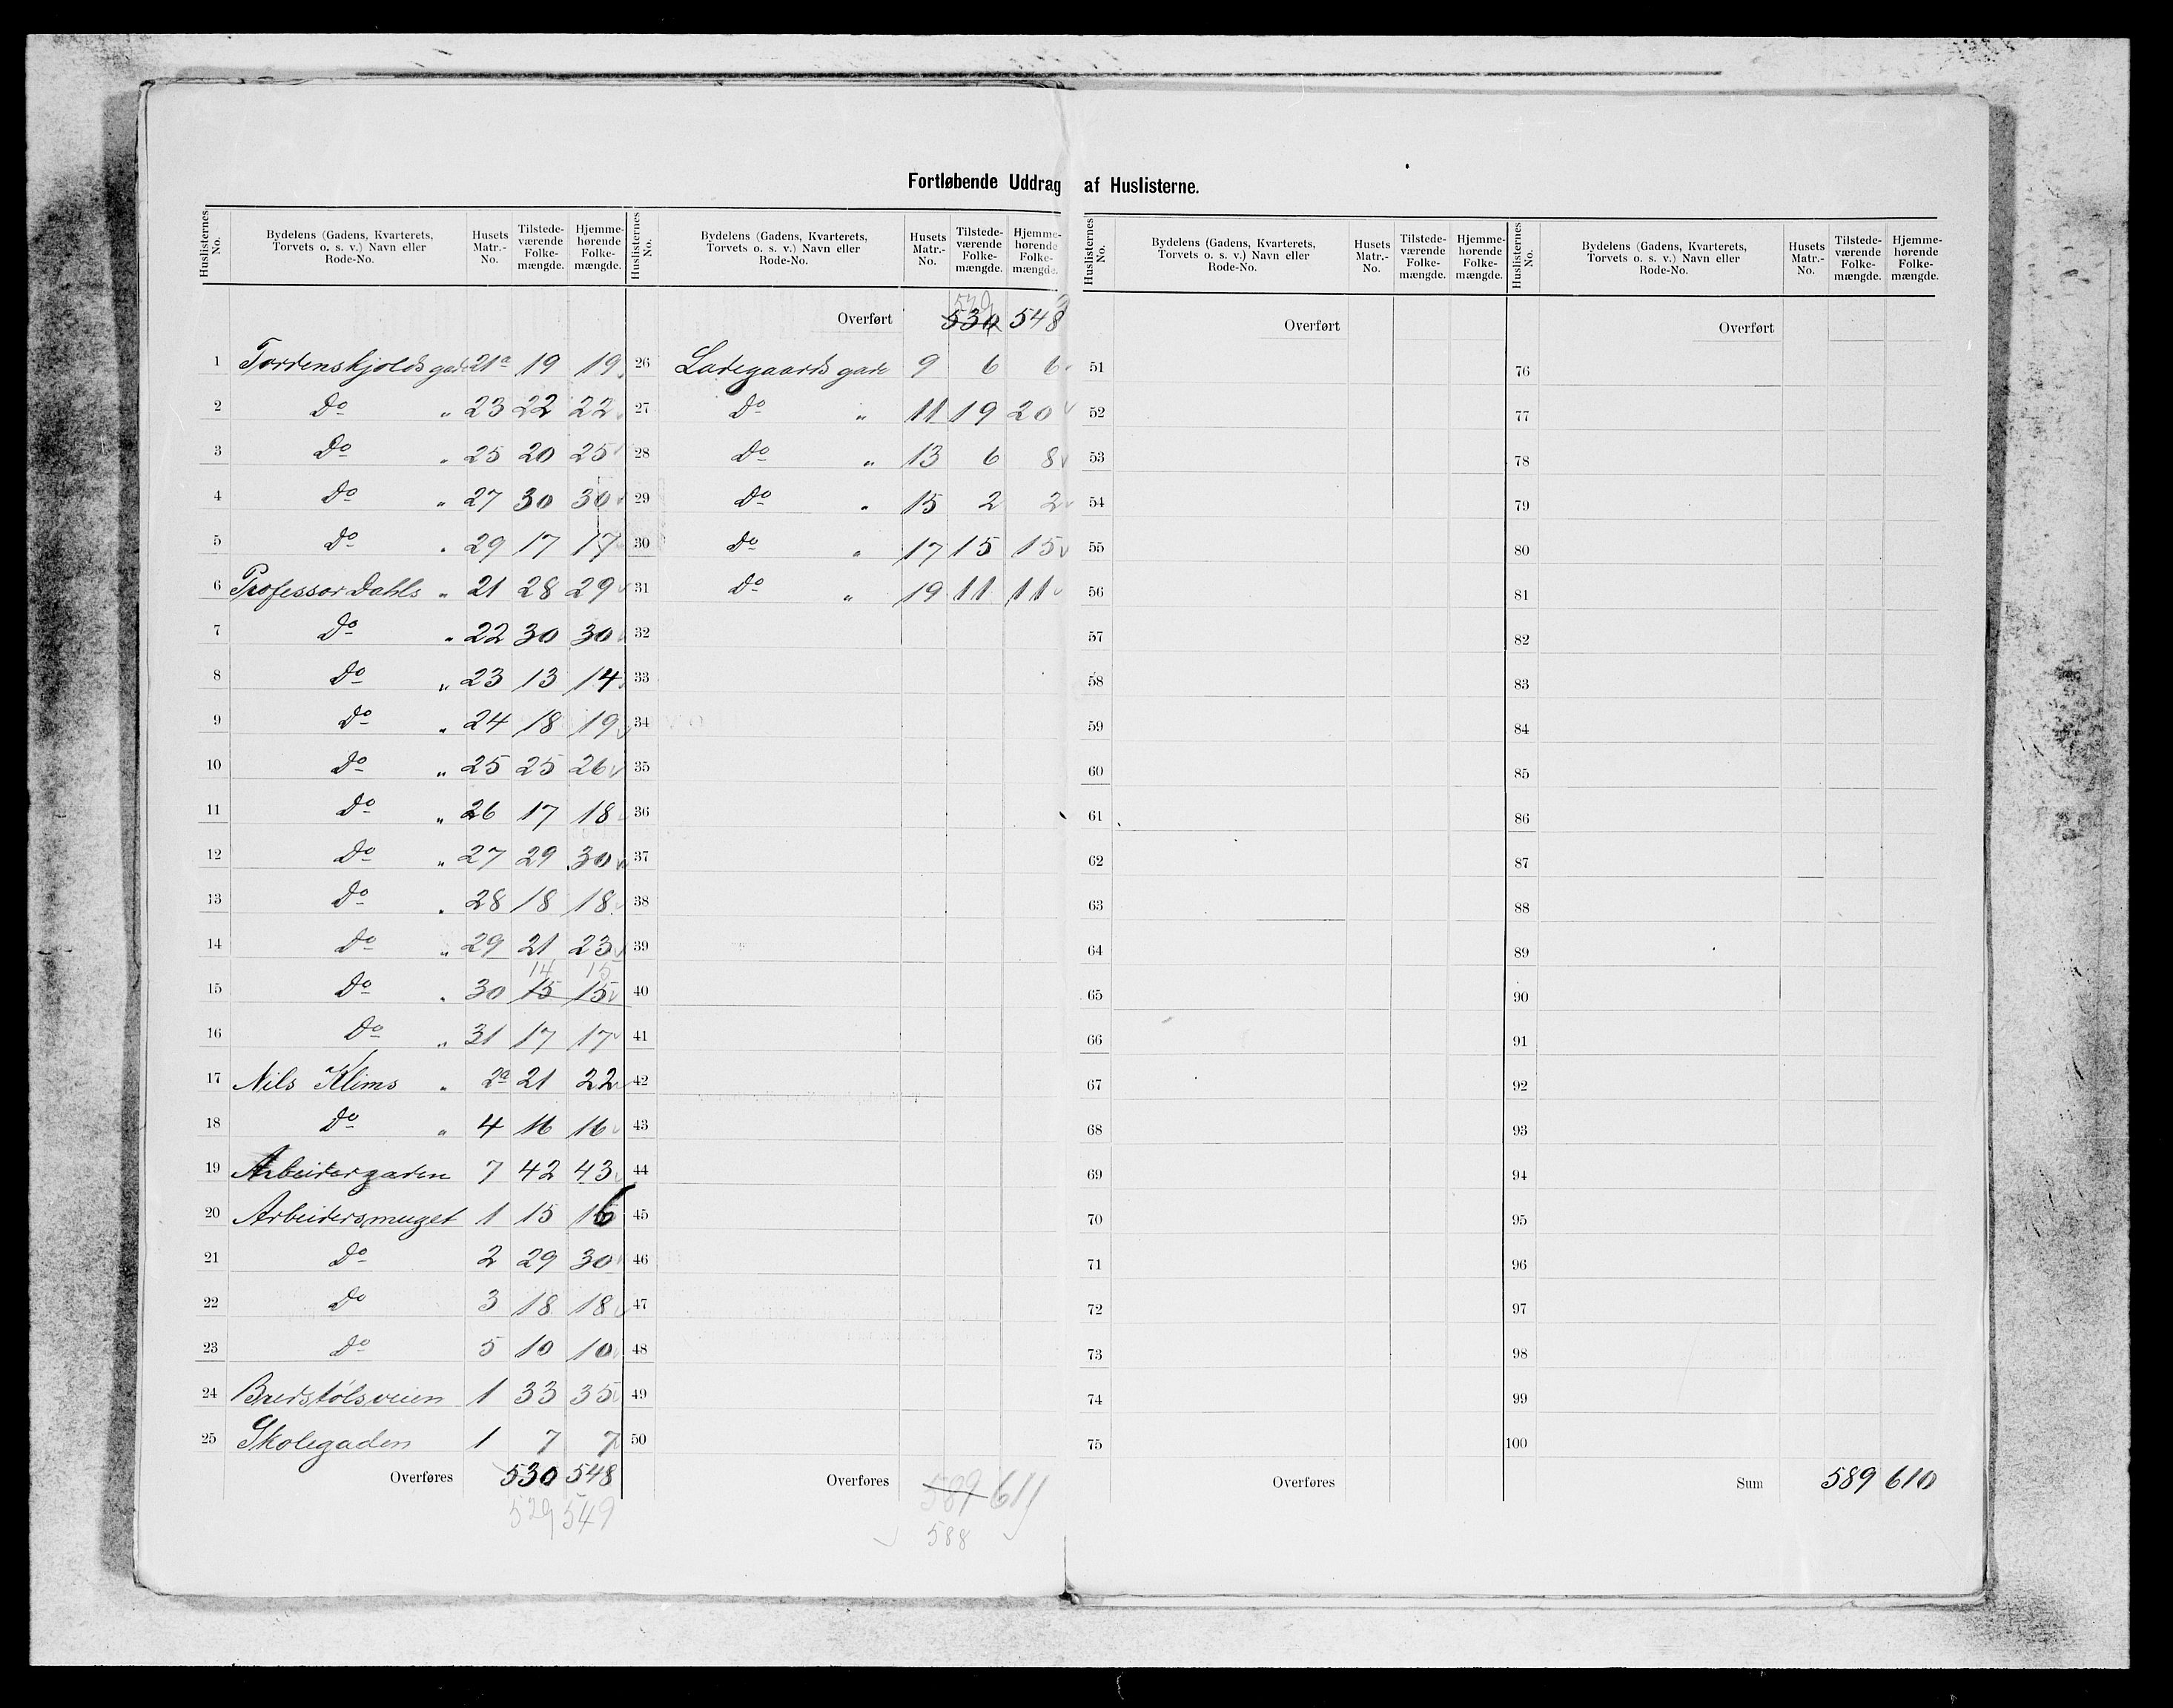 Fortløbende Uddrag af Huslisterne.
Huslisternes No. | Bydelens (Gadens, Kvarterets, Torvets o. s. v.) Navn eller Rode-No. | Husets Matr.-No. | Tilstede-værende Folke-mængde. | Hjemme-hørende Folke-mængde.
1 Tordenskjolds gade 21a 19 19
2 Do " 23 22 22
3 Do " 25 20 25
4 Do " 27 30 30
5 Do " 29 17 17
6 Professor Dahls " 21 28 29
7 Do " 22 30 30
8 Do " 23 13 14
9 Do " 24 18 19
10 Do " 25 25 26
11 Do " 26 17 18
12 Do " 27 29 30
13 Do " 28 18 18
14 Do " 29 21 23
14 15
15 Do " 30 15 15
16 Do " 31 17 17
17 Nils Klims " 2a 21 22
18 Do " 4 16 16
19 Arbeidergaden 7 42 43
20 Arbeidersmuget 1 15 16
21 Do 2 29 30
22 Do 3 18 18
23 Do 5 10 10
24 Bredstølsveien 1 33 35
25 Skolegaden 1 7 7
Overføres 530 548
529 549
Huslisternes No. | Bydelens (Gadens, Kvarterets, Torvets o. s. v.) Navn eller Rode-No. | Husets Matr.-No. | Tilstede-værende Folke-mængde. | Hjemme-hørende Folke-mængde.
529 9
Overført 530 548
26 Ladegaards gade 9 6 6
27 Do " 11 19 20
28 Do " 13 6 8
29 Do " 15 2 2
30 Do " 17 15 15
31 Do " 19 11 11
32
33
34
35
36
37
38
39
40
41
42
43
44
45
46
47
48
49
50
Overføres 589 611
588
Huslisternes No. | Bydelens (Gadens, Kvarterets, Torvets o. s. v.) Navn eller Rode-No. | Husets Matr.-No. | Tilstede-værende Folke-mængde. | Hjemme-hørende Folke-mængde.
Overført
51
52
53
54
55
56
57
58
59
60
61
62
63
64
65
66
67
68
69
70
71
72
73
74
75
Overføres
Huslisternes No. | Bydelens (Gadens, Kvarterets, Torvets o. s. v.) Navn eller Rode-No. | Husets Matr.-No. | Tilstede-værende Folke-mængde. | Hjemme-hørende Folke-mængde.
Overført
76
77
78
79
80
81
82
83
84
85
86
87
88
89
90
91
92
93
94
95
96
97
98
99
100
Sum 589 610